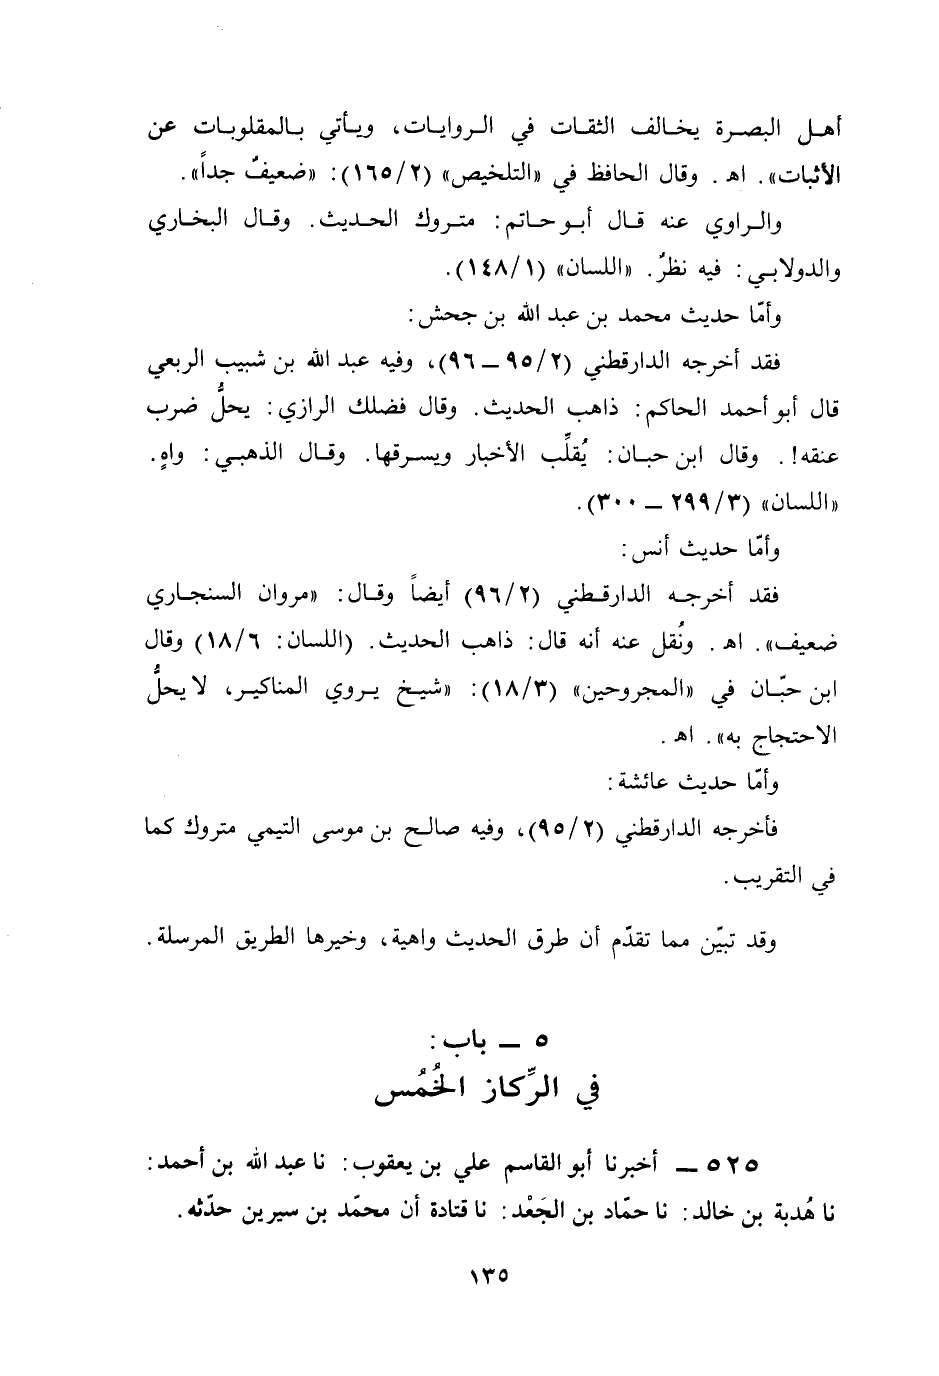 أهـل البصـرة يخـالف الثقـات في الـروايـات، ويـأتي بـالمقلوبـات عن
الأثبات». اهـ. وقال الحافظ في «التلخيص» (١٦٥/٢): «ضعيفٌ جداً».
والـراوي عنه قـال أبـو حـاتم: متـروك الحـديث. وقـال البخـاري
والدولابـي: فيه نظرٌ. «اللسان» (١٤٨/١).
وأمّا حديث محمد بن عبد الله بن جحش:
فقد أخرجه الدارقطني (٩٥/٢ ــ ٩٦)، وفيه عبد الله بن شبيب الربعي
قال أبو أحمد الحاكم: ذاهب الحديث. وقال فضلك الرازي: يحلُّ ضرب
عنقه!. وقال ابن حبـان: يُقلِّب الأخبار ويسـرقها. وقـال الذهبـي: واهٍ.
«اللسان» (٢٩٩/٣ ــ ٣٠٠).
وأمّا حديث أنس:
فقد أخرجـه الدارقـطني (٩٦/٢) أيضاً وقـال: «مروان السنجاري
ضعيف». اهـ. ونُقل عنه أنه قال: ذاهب الحديث. (اللسان: ١٨/٦) وقال
ابن حبّـان في «المجروحين» (١٨/٣): «شيـخ يـروي المناكيـر، لا يحلُّ
الاحتجاج به». اهـ.
وأمّا حديث عائشة:
فأخرجه الدارقطني (٩٥/٢)، وفيه صالـح بن موسى التيمي متروك كما
في التقريب.
وقد تبيّن مما تقدّم أن طرق الحديث واهية، وخيرها الطريق المرسلة.
٥ ــ باب:
في الرِّكاز الخُمُس
٥٢٥ ــ أخبرنا أبو القاسم علي بن يعقوب: نا عبد الله بن أحمد:
نا هُدبة بن خالد: نا حمّاد بن الجَعْد: نا قتادة أن محمّد بن سيرين حدّثه.
١٣٥